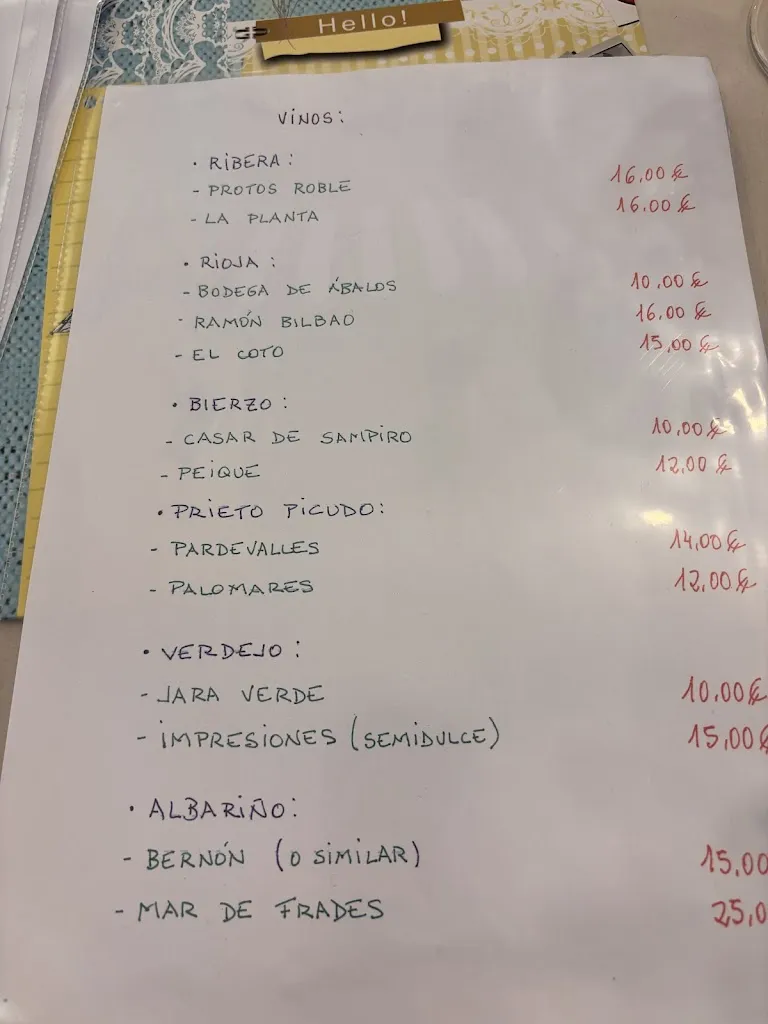 Hello!
VINOS:
· RIBERA:
- PROTOS ROBLE 16,00 €
- LA PLANTA 16.00 €
· RIOJA:
- BODEGA DE ÁBALOS 10,00 €
· RAMÓN BILBAO 16,00 €
- EL COTO 15,00 €
· BIERZO:
- CASAR DE SAMPIRO 10,00 €
- PEIQUE 12,00 €
· PRIETO PICUDO:
- PARDEVALLES 14,00 €
- PALOMARES 12,00 €
· VERDEJO:
- JARA VERDE 10,00 €
- IMPRESIONES (SEMIDULCE) 15,00 €
· ALBARIÑO:
- BERNÓN (O SIMILAR) 15,00
- MAR DE FRADES 25,0